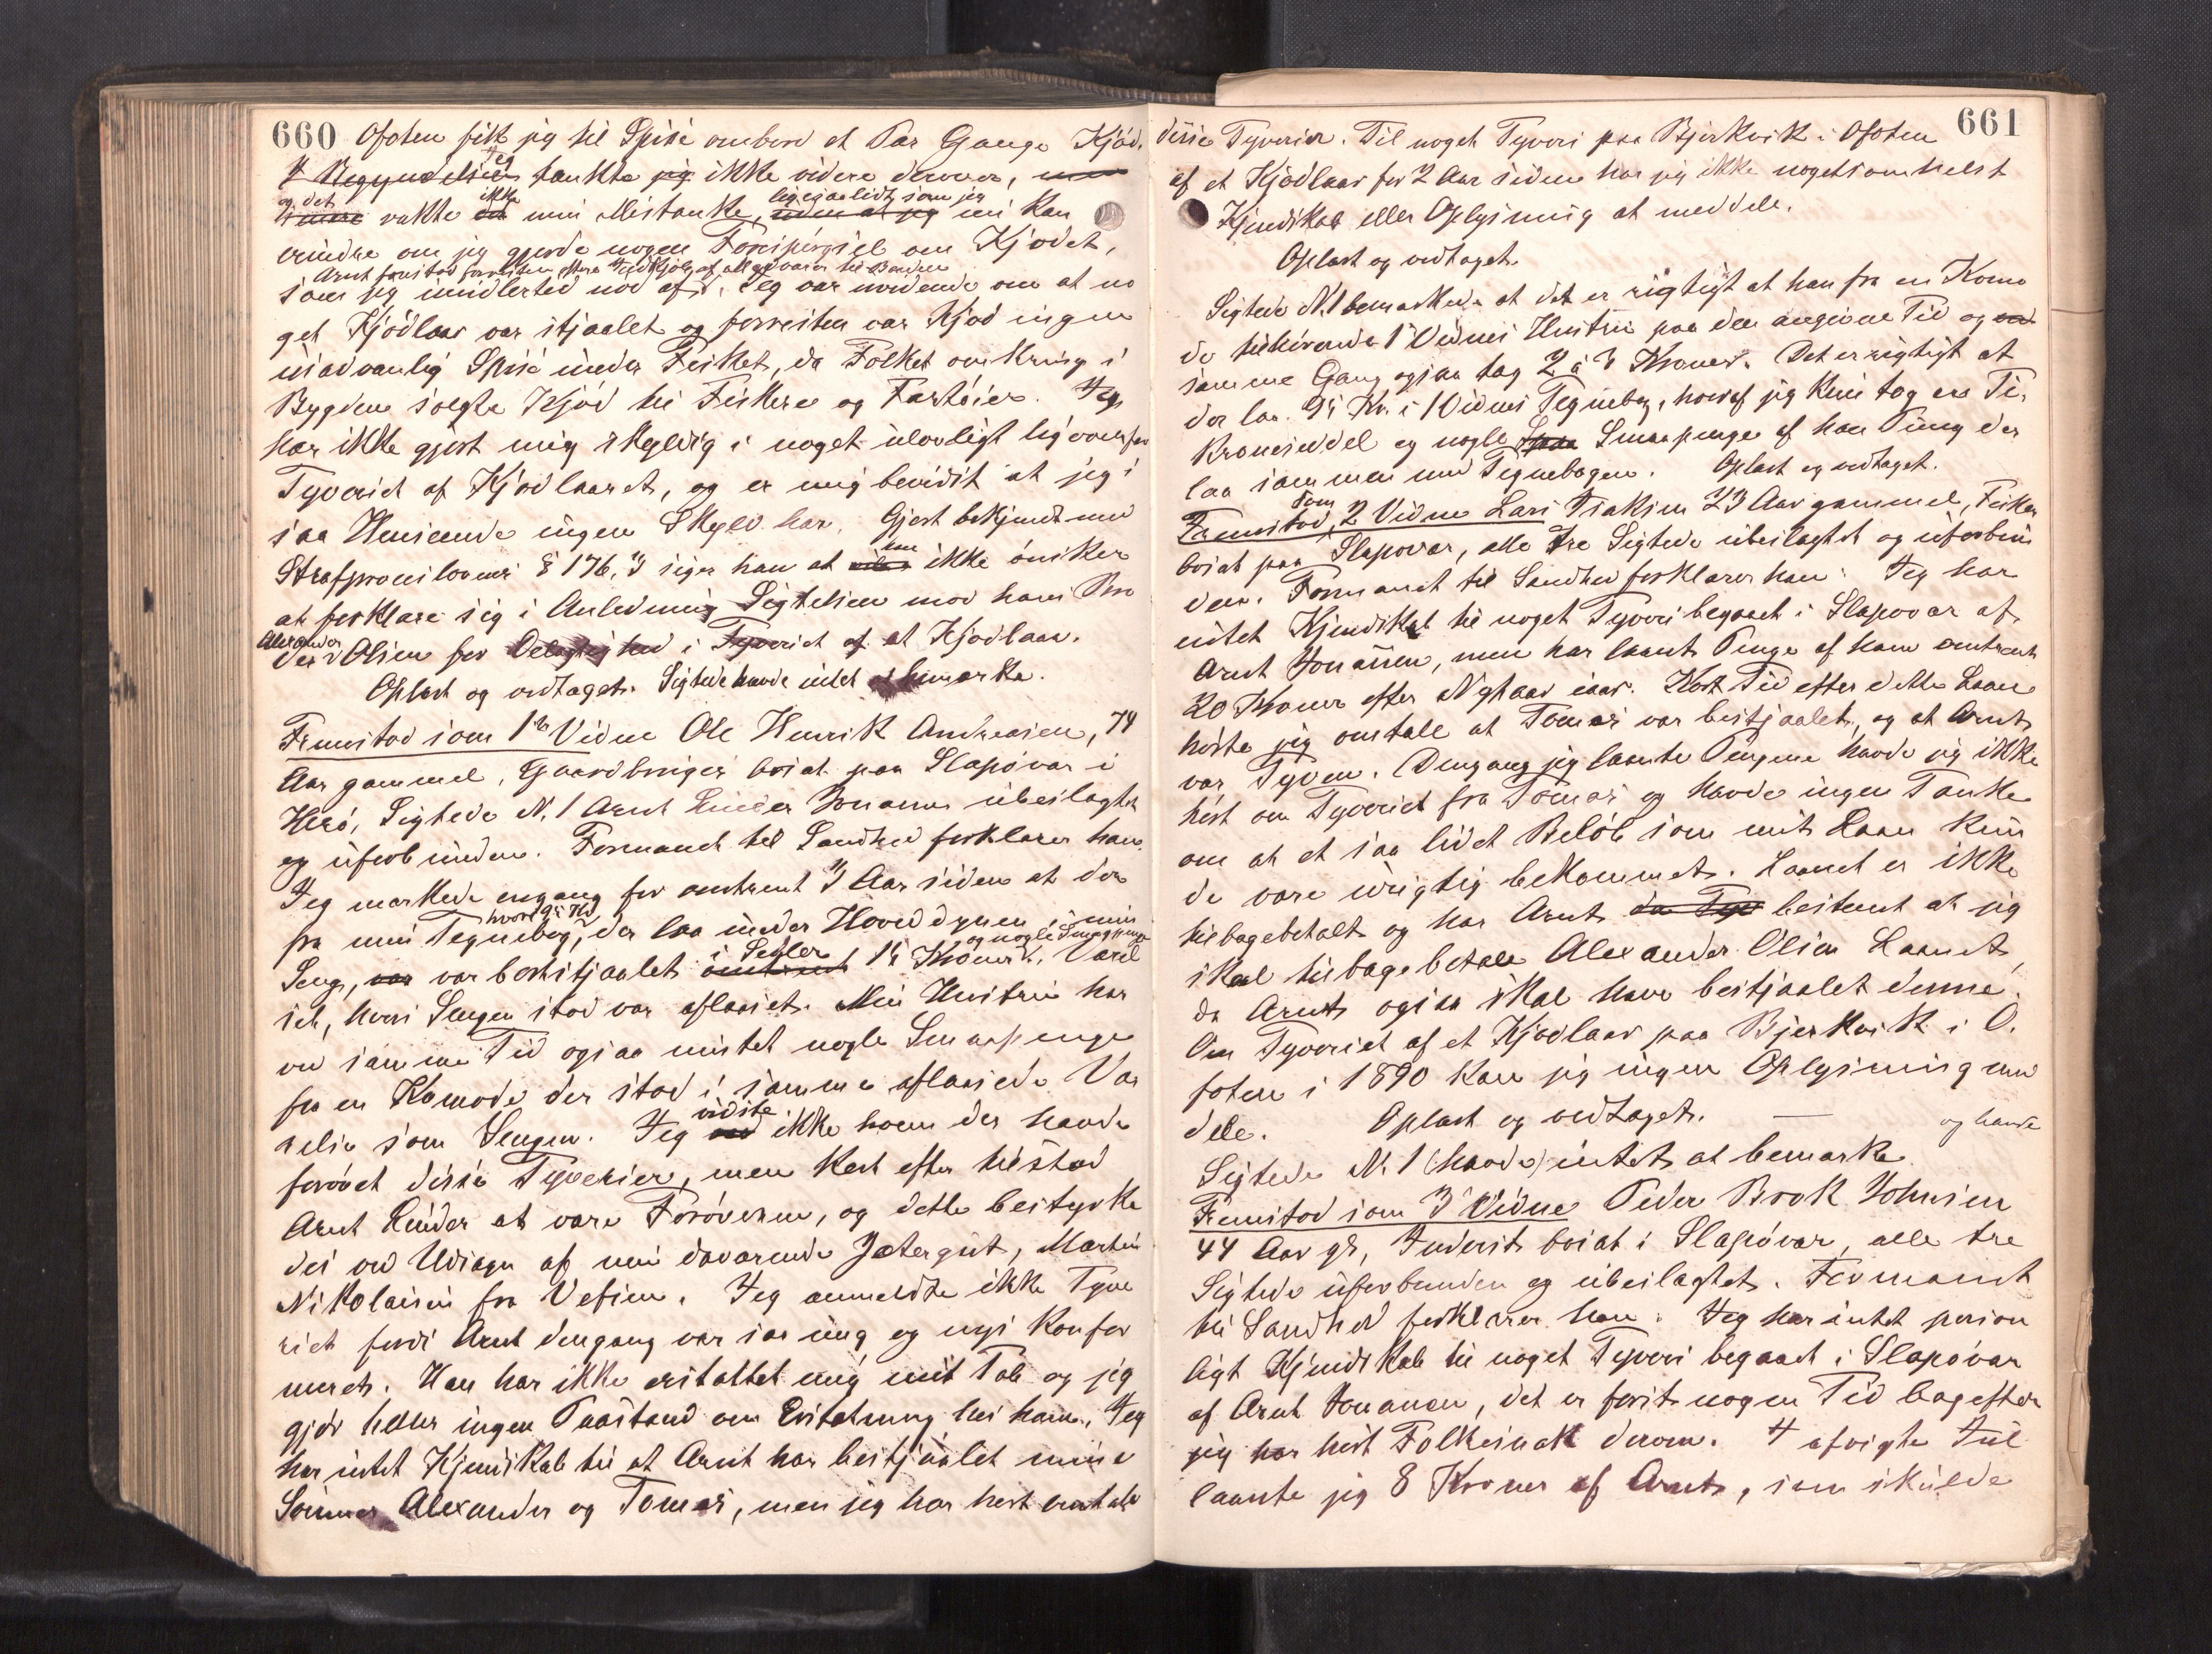 660 Ofoten fik jeg til Spise ombord et Par Gange Kjød.
I Begyndelsen jeg tænkte jeg ikke videre derover, men
og det senere vakte det ikke min Mistanke, uden at jeg ligesaalidt som jeg nu kan
erindre om jeg gjorde nogen Forespørgsel om Kjødet,
Arnt forestod forresten ofte Indkjøb af Madvarer til Baaden
som jeg imidlertid nød af. Jeg var uvidende om at no
get Kjødlaar var stjaalet og forresten var Kjød ingen
usædvanlig Spise under Fisket, da Folket omkring i
Bygden solgte Kjød til Fiskere og Fartøier. Jeg
har ikke gjort mig skyldig i noget ulovligt ligeoverfor
Tyveriet af Kjødlaaret, og er mig bevidst at jeg i
saa Henseende ingen Skyld har. Gjort bekjendt med
Strafproceslovens § 176, 3 siger han at han ikke ønsker
at forklare sig i Anledning Sigtelsen mod hans Bro
der Alexander Olsen for Delagtighed i Tyveriet af et Kjødlaar.
Oplæst og vedtaget. Sigtede havde intet at bemærke.
Fremstod som 1te Vidne Ole Henrik Andreasen, 74
Aar gammel, Gaardbruger bosat paa Slapøvær i
Herø, Sigtede N. 1 Arnt Linder Jonassen ubeslægtet
og uforbunden. Formanet til Sandhed forklarer han:
Jeg mærkede engang for omtrent 3 Aar siden at der
fra min Tegnebog, hvori 95 Kr der laa under Hoveddynen i min
Seng, var var bortstjaalet omtrent i Sedler 15 Kroner og nogle Smaapenge. Værel
set, hvori Sengen stod var aflaaset. Min Hustru har
ved samme Tid ogsaa mistet nogle Smaapenge
fra en Komode der stod i samme aflaasede Væ
relse som Sengen. Jeg ved vidste ikke hvem der havde
forøvet disse Tyverier, men kort efter tilstod
Arnt Linder at være Forøveren, og dette bestyrke
des ved Udsagn af min daværende Jætergut, Martin
Nikolaisen fra Vefsen. Jeg anmeldte ikke Tyve
riet fordi Arnt dengang var saa ung og nys konfir
meret. Han har ikke erstattet mig mit Tab og jeg
gjør heller ingen Paastand om Erstatning hos ham. Jeg
har intet Kjendskab til at Arnt har bestjaalet mine
Sønner Alexander og Tomas, men jeg har hørt omtale
661
disse Tyverier. Til noget Tyveri paa Bjerkvik i Ofoten
af et Kjødlaar for 2 Aar siden har jeg ikke nogetsomhelst
Kjendskab eller Oplysning at meddele.
Oplæst og vedtaget.
Sigtede N. 1 bemærkede at det er rigtigt at han fra en Komo
de tilhørende 1 Vidnes Hustru paa den angivne Tid og ved
samme Gang ogsaa tog 2 à 3 Kroner. Det er rigtigt at
der laa 95 Kr. i 1 Vidnes Tegnebog, hvoraf jeg kun tog en Ti
kroneseddel og nogle Spaa Smaapenge af han Pung der
laa sammen med Tegnebogen. Oplæst og vedtaget.
Fremstod som 2 Vidne Lars Isaksen 23 Aar gammel, Fisker
bosat paa Slapøvær, alle tre Sigtede ubeslægtet og uforbun
den. Formanet til Sandhed forklarer han: Jeg har
intet Kjendskab til noget Tyveri begaaet i Slapøvær af
Arnt Jonassen, men har laant Penge af ham omtrent
20 Kroner efter Nytaar iaar. Kort Tid efter dette Laan
hørte jeg omtale at Tomas var bestjaalet, og at Arnt
var Tyven. Dengang jeg laante Pengene havde jeg ikke
hørt om Tyveriet fra Tomas og havde ingen Tanke
om at et saa lidet Beløb som mit Laan kun
de være urigtig bekommet. Laanet er ikke
tilbagebetalt og har Arnt da Tyv bestemt at jeg
skal tilbagebetale Alexander Olsen Laanet,
da Arnt ogsaa skal have bestjaalet denne.
Om Tyveriet af et Kjødlaar paa Bjerkvik i O
foten i 1890 kan jeg ingen Oplysning med
dele. Oplæst og vedtaget. — og havde
Sigtede N. 1 (havde) intet at bemærke
Fremstod som 3 Vidne Peder Brok Johnsen
44 Aar gl, Inderst bosat i Slapøvær, alle tre
Sigtede uforbunden og ubeslægtet. Formanet
til Sandhed forklarer han: Jeg har intet person
ligt Kjendskab til noget Tyveri begaaet i Slapøvær
af Arnt Jonassen, det er først nogen Tid bagefter
jeg har hørt Folkesnak derom. I afvigte Jul
laante jeg 8 Kroner af Arnt, som skulde